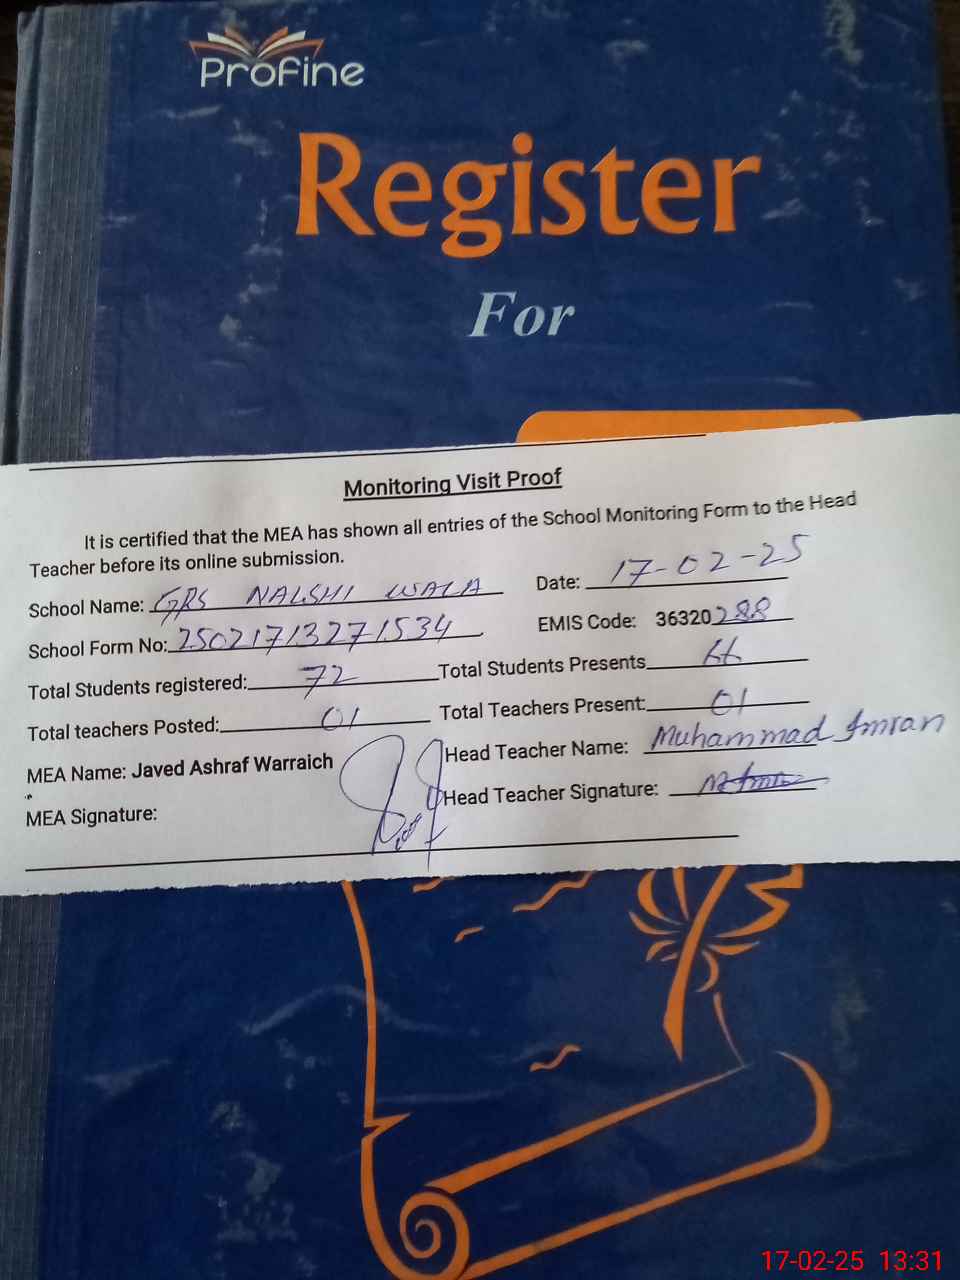 Profine
Register
For
Monitoring Visit Proof
It is certified that the MEA has shown all entries of the School Monitoring Form to the Head
Teacher before its online submission.
School Name: GPS NALSHI WALA Date: 17-02-25
School Form No: 25021713271534 EMIS Code: 36320288
Total Students registered: 72 Total Students Presents 66
Total teachers Posted: 01 Total Teachers Present: 01
MEA Name: Javed Ashraf Warraich Head Teacher Name: Muhammad Imran
MEA Signature: Head Teacher Signature:
17-02-25 13:31